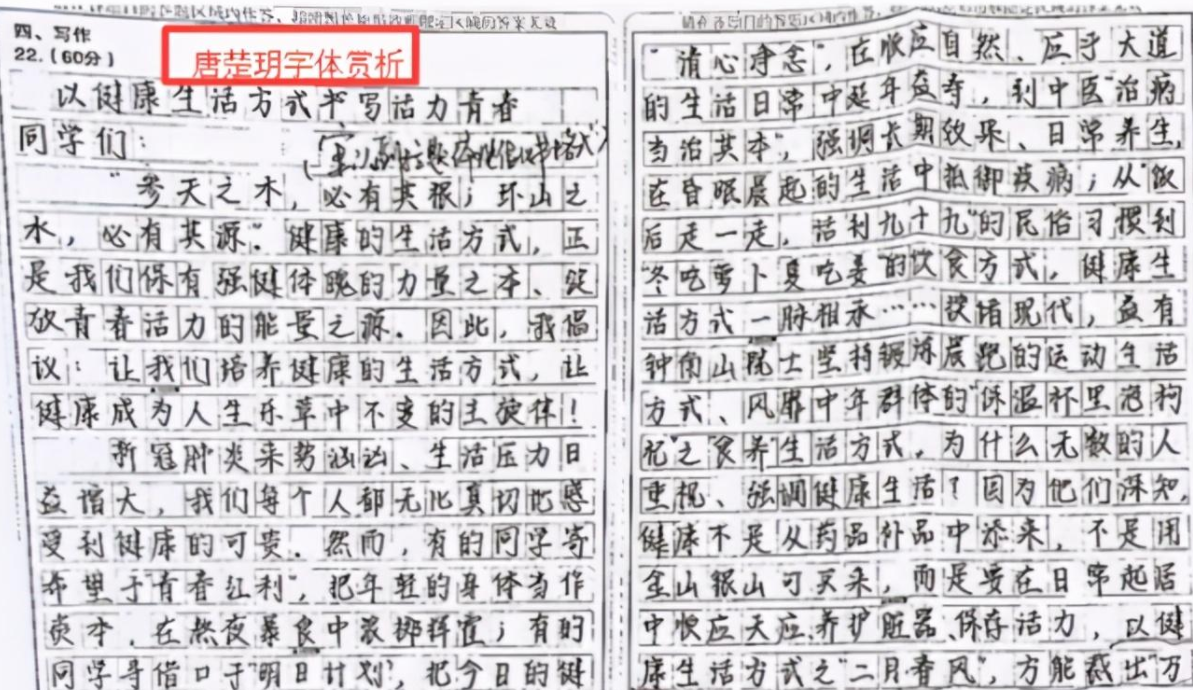 四、写作
22.（60分）
唐楚玥字体赏析
以健康生活方式书写活力青春
同学们：
"参天之木，必有其根；环山之
水，必有其源"。健康的生活方式，正
是我们保有强健体魄的力量之本、绽
放青春活力的能量之源。因此，我倡
议：让我们培养健康的生活方式，让
健康成为人生乐章中不变的主旋律！
新冠肺炎来势汹汹、生活压力日
益增大，我们每个人都无比真切地感
受到健康的可贵。然而，有的同学寄
希望于"青春红利"，把年轻的身体当作
资本，在熬夜暴食中浪掷挥霍；有的
同学寻借口于"明日计划"，把今日的健
"清心净念"，在顺应自然、应乎大道
的生活日常中延年益寿，到中医"治病
当治其本"，强调长期效果、日常养生，
在昏眠晨起的生活中抵御疾病；从"饭
后走一走，活到九十九"的民俗习惯到
"冬吃萝卜夏吃姜"的饮食方式，健康生
活方式一脉相承……投诸现代，益有
钟南山院士坚持锻炼晨跑的运动生活
方式、风靡中年群体的"保温杯里泡枸
杞"之"食养"生活方式。为什么无数的人
重视、强调健康生活？因为他们深知，
健康不是从药品补品中添来，不是用
金山银山可买来，而是要在日常起居
中顺应天应、养护脏器、保存活力，以健
康生活方式之"二月春风"，方能裁出"万